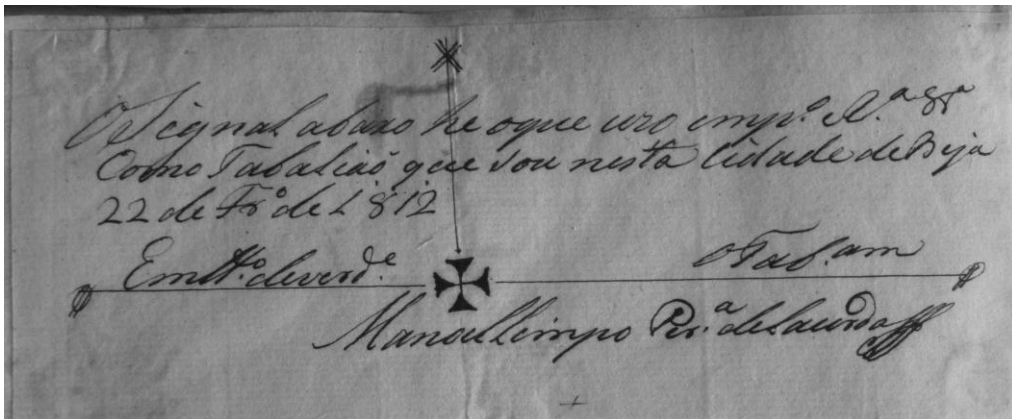 O Signal abaxo he oque uzo emp.º N.ª
Como Tabaliaõ que sou nesta Cidade de Beja
22 de Fr.º de 1812
Em tt.º de verd.e
O Tab.am
Manoel Limpo Per.ª de Lacerda